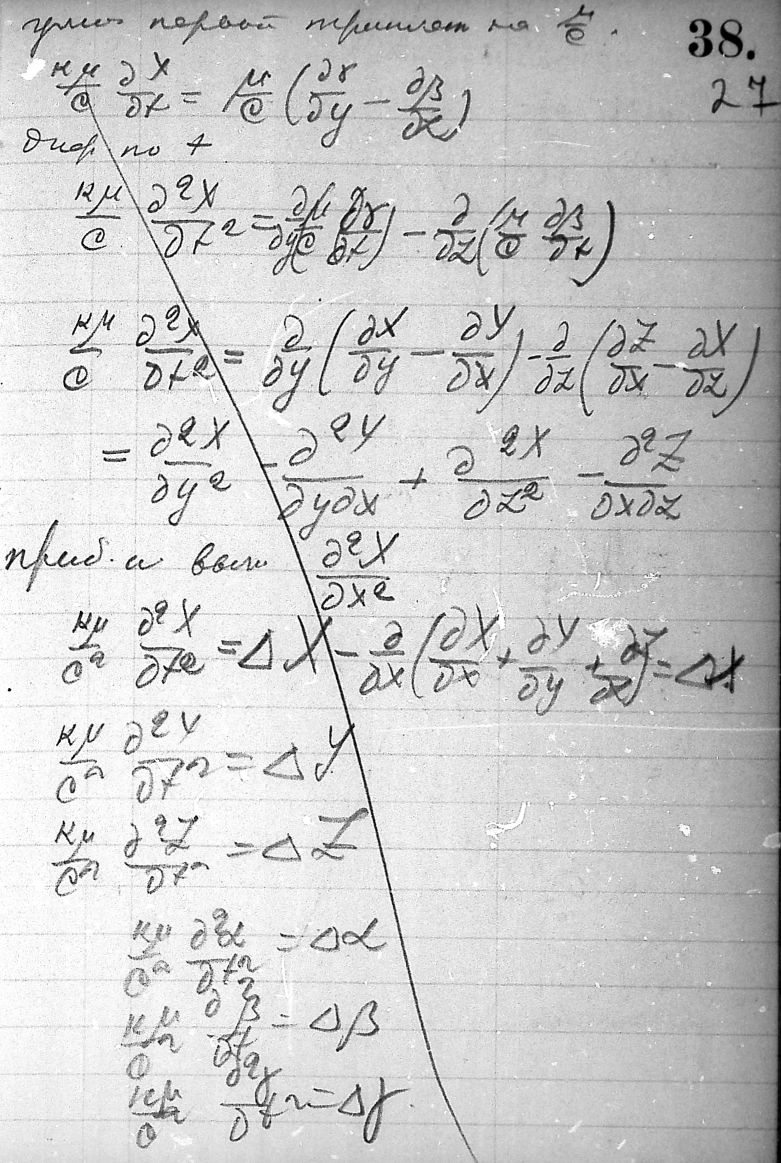 38.
27
первой на μ/c.
κμ/c ∂X/∂t = μ/c (∂γ/∂y − ∂β/∂z)
Диф по t
κμ/c ∂²X/∂t² = ∂/∂y(μ/c ∂γ/∂t) − ∂/∂z(μ/c ∂β/∂t)
κμ/c ∂²X/∂t² = ∂/∂y(∂X/∂y − ∂Y/∂x) − ∂/∂z(∂Z/∂x − ∂X/∂z)
= ∂²X/∂y² − ∂²Y/∂y∂x + ∂²X/∂z² − ∂²Z/∂x∂z
приб. и выч ∂²X/∂x²
κμ/c² ∂²X/∂t² = ΔX − ∂/∂x(∂X/∂x + ∂Y/∂y + ∂Z/∂z) = ΔX
κμ/c² ∂²Y/∂t² = ΔY
κμ/c² ∂²Z/∂t² = ΔZ
κμ/c² ∂²α/∂t² = Δα
κμ/c² ∂²β/∂t = Δβ
κμ/c² ∂²γ/∂t² = Δγ